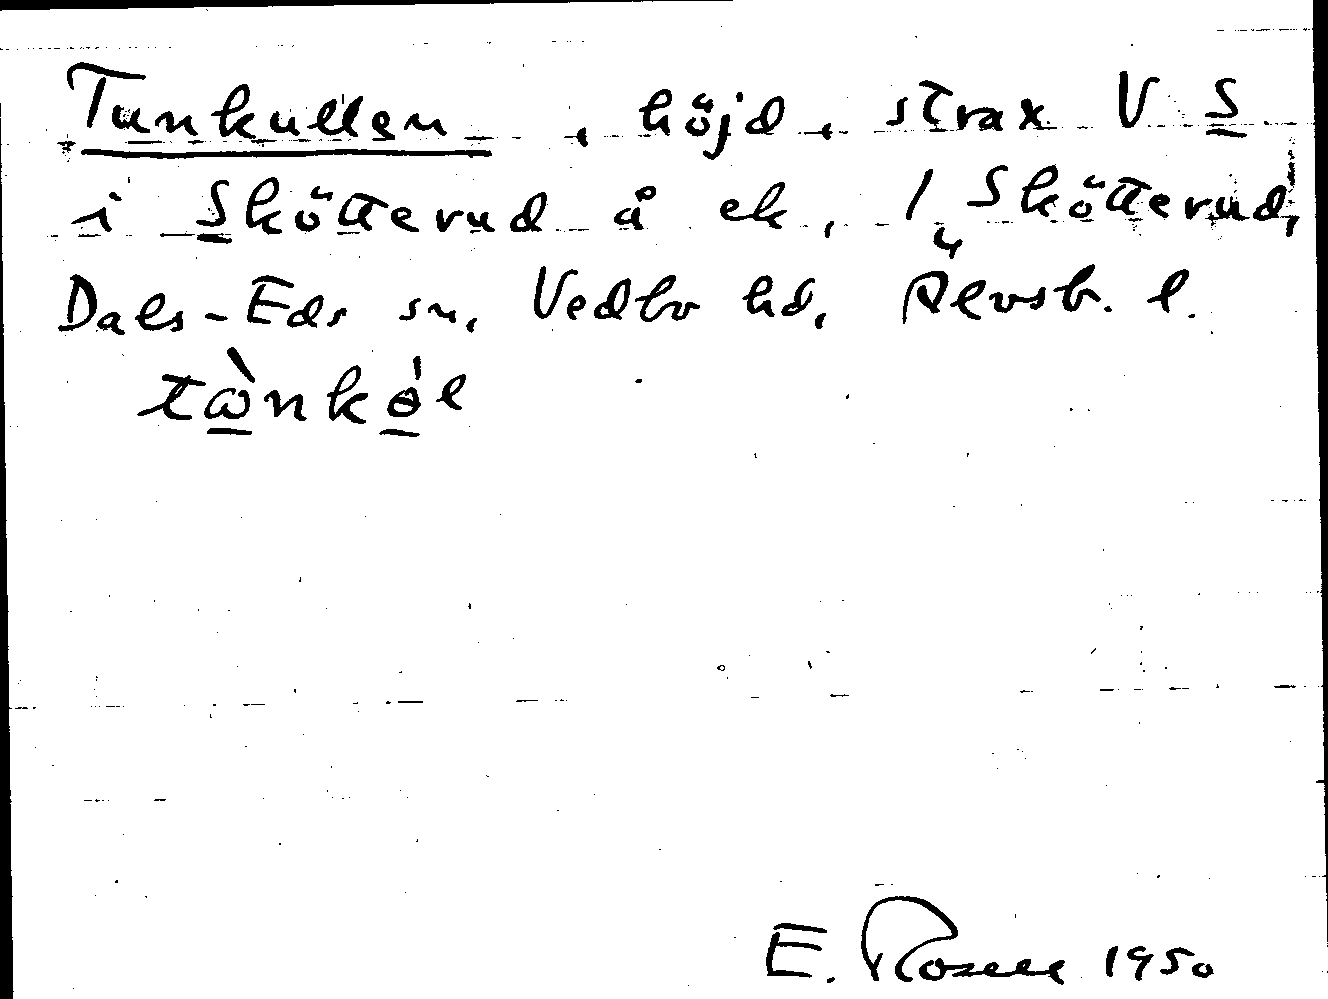 Tunkullen, höjd, strax V S
i Skötterud å ek, 1/4 Skötterud,
Dals-Eds sn, Vedbo hd, Älvsb. l.
tὼnkɵ̀l
E. Rosell 1950